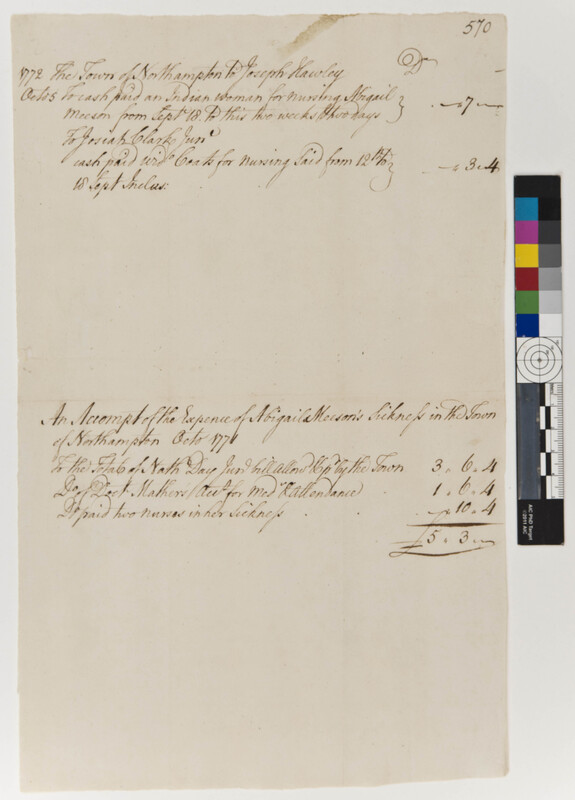 570
1772 The Town of Northampton to Joseph Hawley Dr
Octo 5 To cash paid an Indian woman for nursing Abigail
Meeson from Sept 18. to this two weeks & two days } - „ 7 „ -
To Josiah Clark Junr
cash paid wid. Coats for nursing said from 12th to } - „ 3 „ 4
18 Sept Inclus:
An Accompt of the Expence of Abigail Meeson's Sickness in the Town
of Northampton Octo 1771
To the of Nath Day Junr bill allow'd by the Town 3 „ 6 „ 4
Do of Doct Mathers Acc. for Med. & Attendance 1 „ 6 „ 4
Do paid two nurses in her Sickness - „ 10 „ 4
£5 „ 3 „ -
AIC PhD Target
©2011 AIC